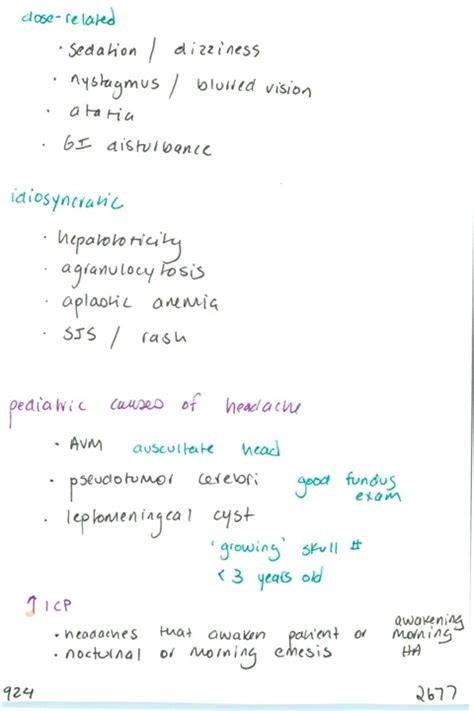 dose-related
· sedation / dizziness
· nystagmus / blurred vision
· ataxia
· GI disturbance
idiosyncratic
· hepatotoxicity
· agranulocytosis
· aplastic anemia
· SJS / rash
pediatric causes of headache
· AVM auscultate head
· pseudotumor cerebri good fundus exam
· leptomeningeal cyst
'growing' skull #
< 3 years old
↑ ICP
· headaches that awaken patient or awakening morning HA
· nocturnal or morning emesis
924 2677